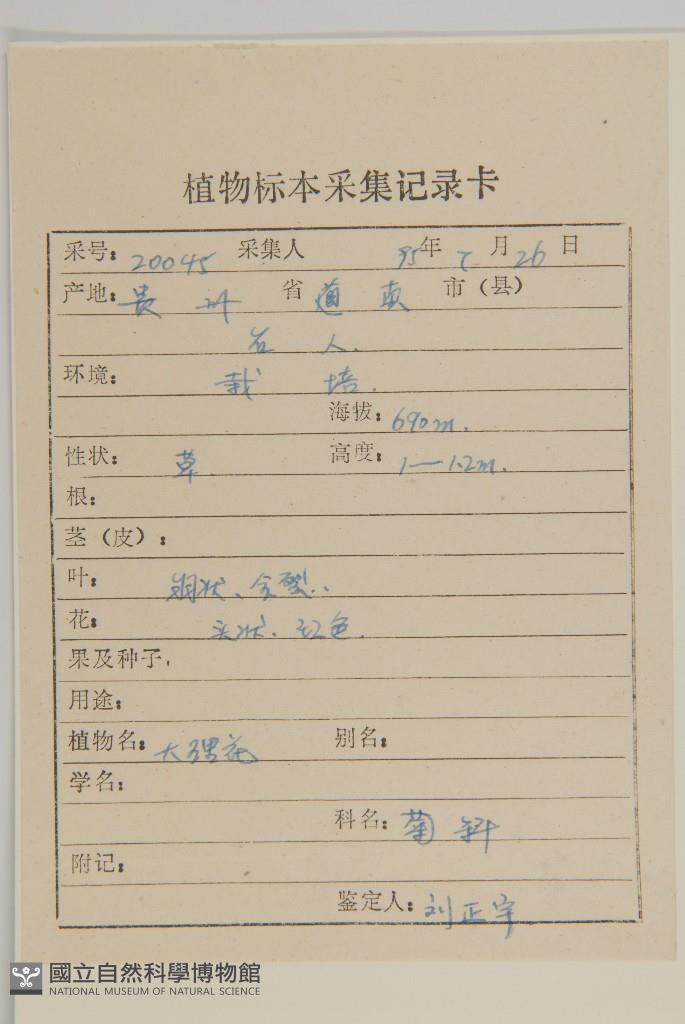 植物标本采集记录卡
采号: 20045 采集人 95年 7月26日
产地: 贵州 省 道真 市(县)
石人.
环境: 栽培.
海拔: 690m.
性状: 草. 高度: 1—1.2m.
根:
茎(皮):
叶: 羽状、全裂.
花: 头状. 红色.
果及种子,
用途:
植物名: 大理花 别名:
学名:
科名: 菊科
附记:
鉴定人: 刘正宇
國立自然科學博物館
NATIONAL MUSEUM OF NATURAL SCIENCE